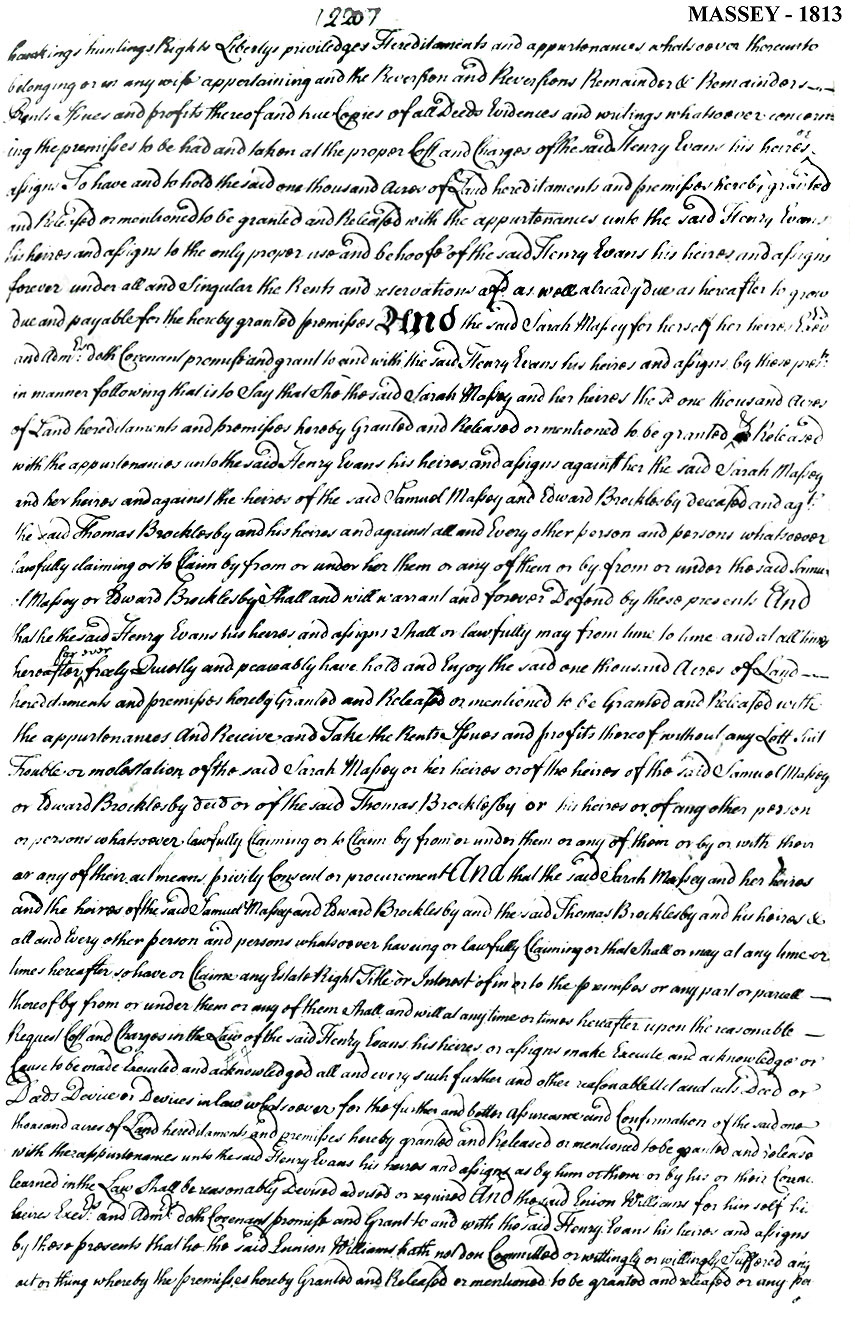 12207
MASSEY - 1813
hawkings huntings Rights Libertys priviledges Hereditaments and appurtenances whatsoever thereunto
belonging or in any wise appertaining and the Reversion and Reversions Remainder & Remainders
Rents Issues and profits thereof and true Copies of all Deeds Evidences and writings whatsoever concern
ing the premisses to be had and taken at the proper Cost and Charges of the said Henry Evans his heires or
assigns To have and to hold the said one thousand Acres of Land hereditaments and premisses hereby granted
and Released or mentioned to be granted and Released with the appurtenances unto the said Henry Evans
his heires and assigns to the only proper use and behoofe of the said Henry Evans his heires and assigns
forever under all and Singular the Rents and reservations as well already due as hereafter to grow
due and payable for the hereby granted premisses And the said Sarah Massey for herself her heires Exrs
and Admrs doth Covenant promise and grant to and with the said Henry Evans his heires and assigns by these prets
in manner following that is to Say that She the said Sarah Massey and her heires the sd one thousand Acres
of Land hereditaments and premisses hereby Granted and Released or mentioned to be granted & Released
with the appurtenancies unto the said Henry Evans his heires and assigns against her the said Sarah Massey
and her heires and against the heires of the said Samuel Massey and Edward Brocklesby deceased and agt
the said Thomas Brocklesby and his heires and against all and Every other person and persons whatsoever
lawfully claiming or to Claim by from or under her them or any of them or by from or under the said Samu
el Massey or Edward Brocklesby Shall and will warrant and forever Defend by these presents And
that he the said Henry Evans his heires and assigns Shall or lawfully may from time to time and at all times
for ever
hereafter freely Quietly and peaceably have hold and Enjoy the said one thousand Acres of Land
hereditaments and premisses hereby Granted and Released or mentioned to be Granted and Released with
the appurtenances And Receive and Take the Rents Issues and profits thereof without any Lett Suit
Trouble or molestation of the said Sarah Massey or her heires or of the heires of the said Samuel Massey
or Edward Brocklesby decd or of the said Thomas Brocklesby or his heires or of any other person
or persons whatsoever lawfully Claiming or to Claim by from or under them or any of them or by or with their
or any of their act means privity Consent or procurement And that the said Sarah Massey and her heires
and the heires of the said Samuel Massey and Edward Brocklesby and the said Thomas Brocklesby and his heires &
all and Every other person and persons whatsoever haveing or lawfully Claiming or that Shall or may at any time or
times hereafter so have or Claime any Estate Right Title or Interest of in or to the premises or any part or parcell
thereof by from or under them or any of them Shall and will at any time or times hereafter upon the reasonable
Request Cost and Charges in the Law of the said Henry Evans his heires or assigns make Execute and acknowledge or
Cause to be made Executed and acknowledged all and every such further and other reasonable Act and acts Deed or
Deeds Device or Devices in law whatsoever for the further and better assureance and Confirmation of the said one
thousand acres of Land hereditaments and premisses hereby granted and Released or mentioned to be granted and release
with the appurtenances unto the said Henry Evans his heires and assigns as by him or them or by his or their Counc
learned in the Law Shall be reasonably Devised advised or required And the said Enion Williams for himself hi
heires Exers and Admrs doth Covenant promise and Grant to and with the said Henry Evans his heires and assigns
by these presents that he the said Ennion Williams hath not don Committed or wittingly or willingly Suffered any
act or thing whereby the premisses hereby Granted and Released or mentioned to be granted and released or any pa